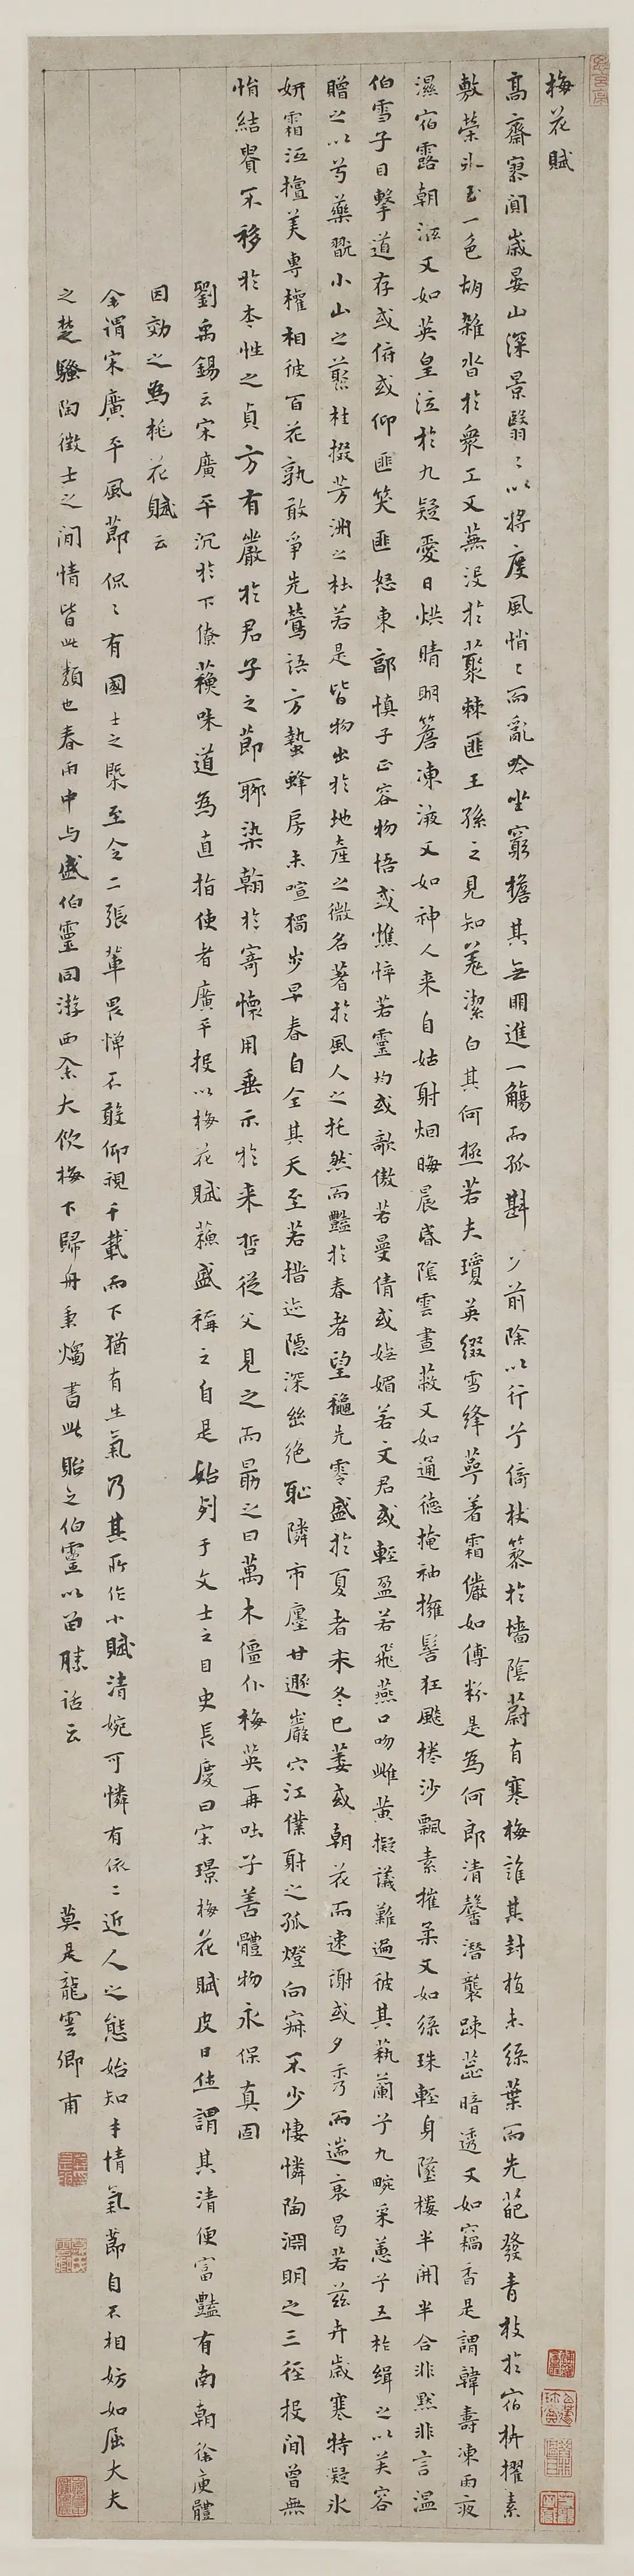 梅花賦
高齋寥闃歲晏山深景翳〻以將度風悄〻而亂吟坐窮檐其無朋進一觴而孤斟步前除以行兮倚杖藜於墻陰蔚有寒梅誰其封植未綠葉而先葩發青枝於宿枿擢素
敷榮氷玉一色胡雜沓於衆工又蕪没於叢棘匪王孫之見知羗潔白其何極若夫瓊英綴雪絳萼著霜儼如傅粉是為何郎清馨潛襲踈蕊暗透又如竊香是謂韓壽凍雨夜
濕宿露朝泫又如英皇泣於九疑愛日烘晴明蟾凍液又如神人来自姑射烟晦晨昏陰雲晝蔽又如通德掩袖擁髻狂飈捲沙飄素摧柔又如綠珠輕身墜樓半開半合非黙非言温
伯雪子目擊道存或俯或仰匪笑匪怒東郭慎子正容物悟或憔悴若靈均或歌傲若曼倩或嫵媚若文君或輕盈若飛燕口吻雌黄擬議難遍彼其蓺蘭兮九畹采蕙兮五柞緝之以芙容
贈之以芍藥翫小山之叢桂掇芳洲之杜若是皆物出於地産之微名著於風人之托然而豔於春者望穐先零盛於夏者未冬已萎或朝花而速謝或夕秀而遄衰曷若兹卉歲寒特凝氷
妍霜冱擅美專權相彼百花孰敢爭先鶯語方蟄蜂房未喧獨步早春自全其天至若措迹隱深幽絶恥隣市廛甘遯巖穴江僕射之孤燈向寂不少悽憐陶淵明之三徑投閒曾無
悁結貴不移於本性之貞方有嚴於君子之節聊染翰於寄懷用垂示於来哲從父見之而勗之曰萬木僵仆梅英再吐子善體物永保真固
劉禹錫云宋廣平沉於下僚蘓味道為直指使者廣平投以梅花賦蘓盛稱之自是始列于文士之目史長慶曰宋璟梅花賦皮日休謂其清便富豔有南朝徐庾體
因効之為桃花賦云
余謂宋廣平風節侃〻有國士之槩至令二張輩畏憚不敢仰視千載而下猶有生氣乃其所作小賦清婉可憐有依〻近人之態始知丰情氣節自不相妨如屈大夫
之楚騷陶徵士之閒情皆此類也春雨中与盛伯靈同游西佘大飲梅下歸舟秉燭書此貽之伯靈以當賸話云
莫是龍雲卿甫